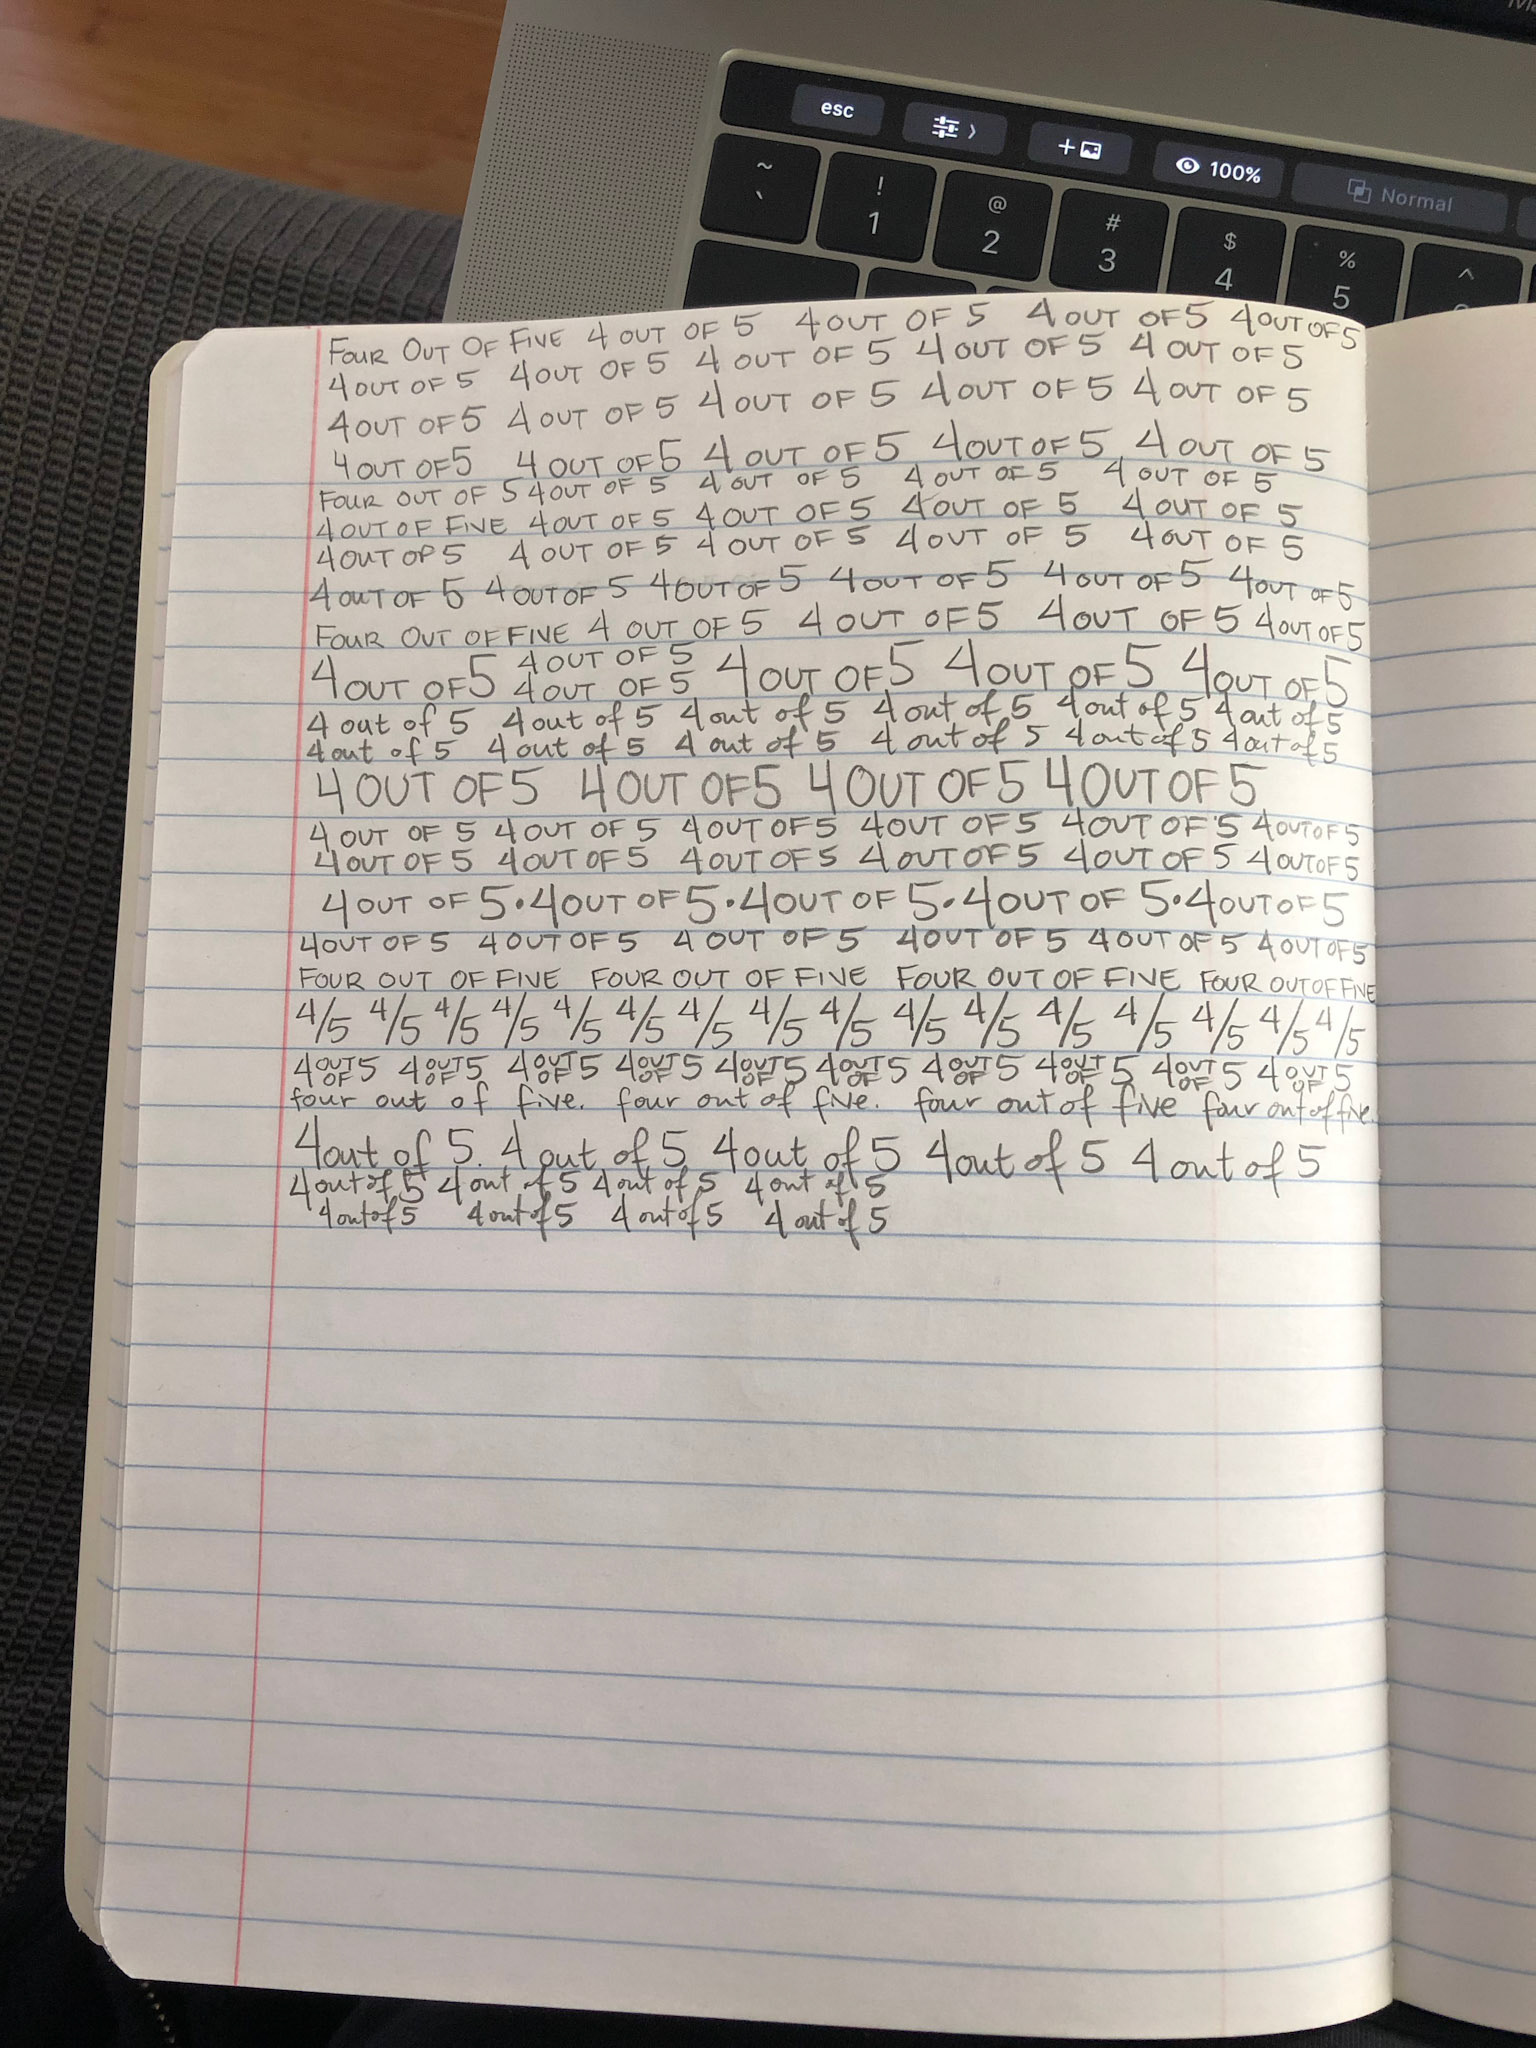 Ma
esc
100%
Normal
~ ! @ # $ % ^
` 1 2 3 4 5
FOUR OUT OF FIVE 4 OUT OF 5 4 OUT OF 5 4 OUT OF 5 4 OUT OF 5
4 OUT OF 5 4 OUT OF 5 4 OUT OF 5 4 OUT OF 5 4 OUT OF 5
4 OUT OF 5 4 OUT OF 5 4 OUT OF 5 4 OUT OF 5 4 OUT OF 5
4 OUT OF 5 4 OUT OF 5 4 OUT OF 5 4 OUT OF 5 4 OUT OF 5
FOUR OUT OF 5 4 OUT OF 5 4 OUT OF 5 4 OUT OF 5 4 OUT OF 5
4 OUT OF FIVE 4 OUT OF 5 4 OUT OF 5 4 OUT OF 5 4 OUT OF 5
4 OUT OP 5 4 OUT OF 5 4 OUT OF 5 4 OUT OF 5 4 OUT OF 5
4 OUT OF 5 4 OUT OF 5 4 OUT OF 5 4 OUT OF 5 4 OUT OF 5 4 OUT OF 5
FOUR OUT OF FIVE 4 OUT OF 5 4 OUT OF 5 4 OUT OF 5 4 OUT OF 5
4 OUT OF 5 4 OUT OF 5 4 OUT OF 5 4 OUT OF 5 4 OUT OF 5
4 OUT OF 5
4 out of 5 4 out of 5 4 out of 5 4 out of 5 4 out of 5 4 out of 5
4 out of 5 4 out of 5 4 out of 5 4 out of 5 4 out of 5 4 out of 5
4 OUT OF 5 4 OUT OF 5 4 OUT OF 5 4 OUT OF 5
4 OUT OF 5 4 OUT OF 5 4 OUT OF 5 4 OUT OF 5 4 OUT OF 5 4 OUT OF 5
4 OUT OF 5 4 OUT OF 5 4 OUT OF 5 4 OUT OF 5 4 OUT OF 5 4 OUT OF 5
4 OUT OF 5 • 4 OUT OF 5 • 4 OUT OF 5 • 4 OUT OF 5 • 4 OUT OF 5
4 OUT OF 5 4 OUT OF 5 4 OUT OF 5 4 OUT OF 5 4 OUT OF 5 4 OUT OF 5
FOUR OUT OF FIVE FOUR OUT OF FIVE FOUR OUT OF FIVE FOUR OUT OF FIVE
4/5 4/5 4/5 4/5 4/5 4/5 4/5 4/5 4/5 4/5 4/5 4/5 4/5 4/5 4/5 4/5
4 OUT OF 5 4 OUT OF 5 4 OUT OF 5 4 OUT OF 5 4 OUT OF 5 4 OUT OF 5 4 OUT OF 5 4 OUT OF 5 4 OUT OF 5 4 OUT OF 5
four out of five. four out of five. four out of five four out of five.
4 out of 5. 4 out of 5 4 out of 5 4 out of 5 4 out of 5
4 out of 5 4 out of 5 4 out of 5 4 out of 5
4 out of 5 4 out of 5 4 out of 5 4 out of 5